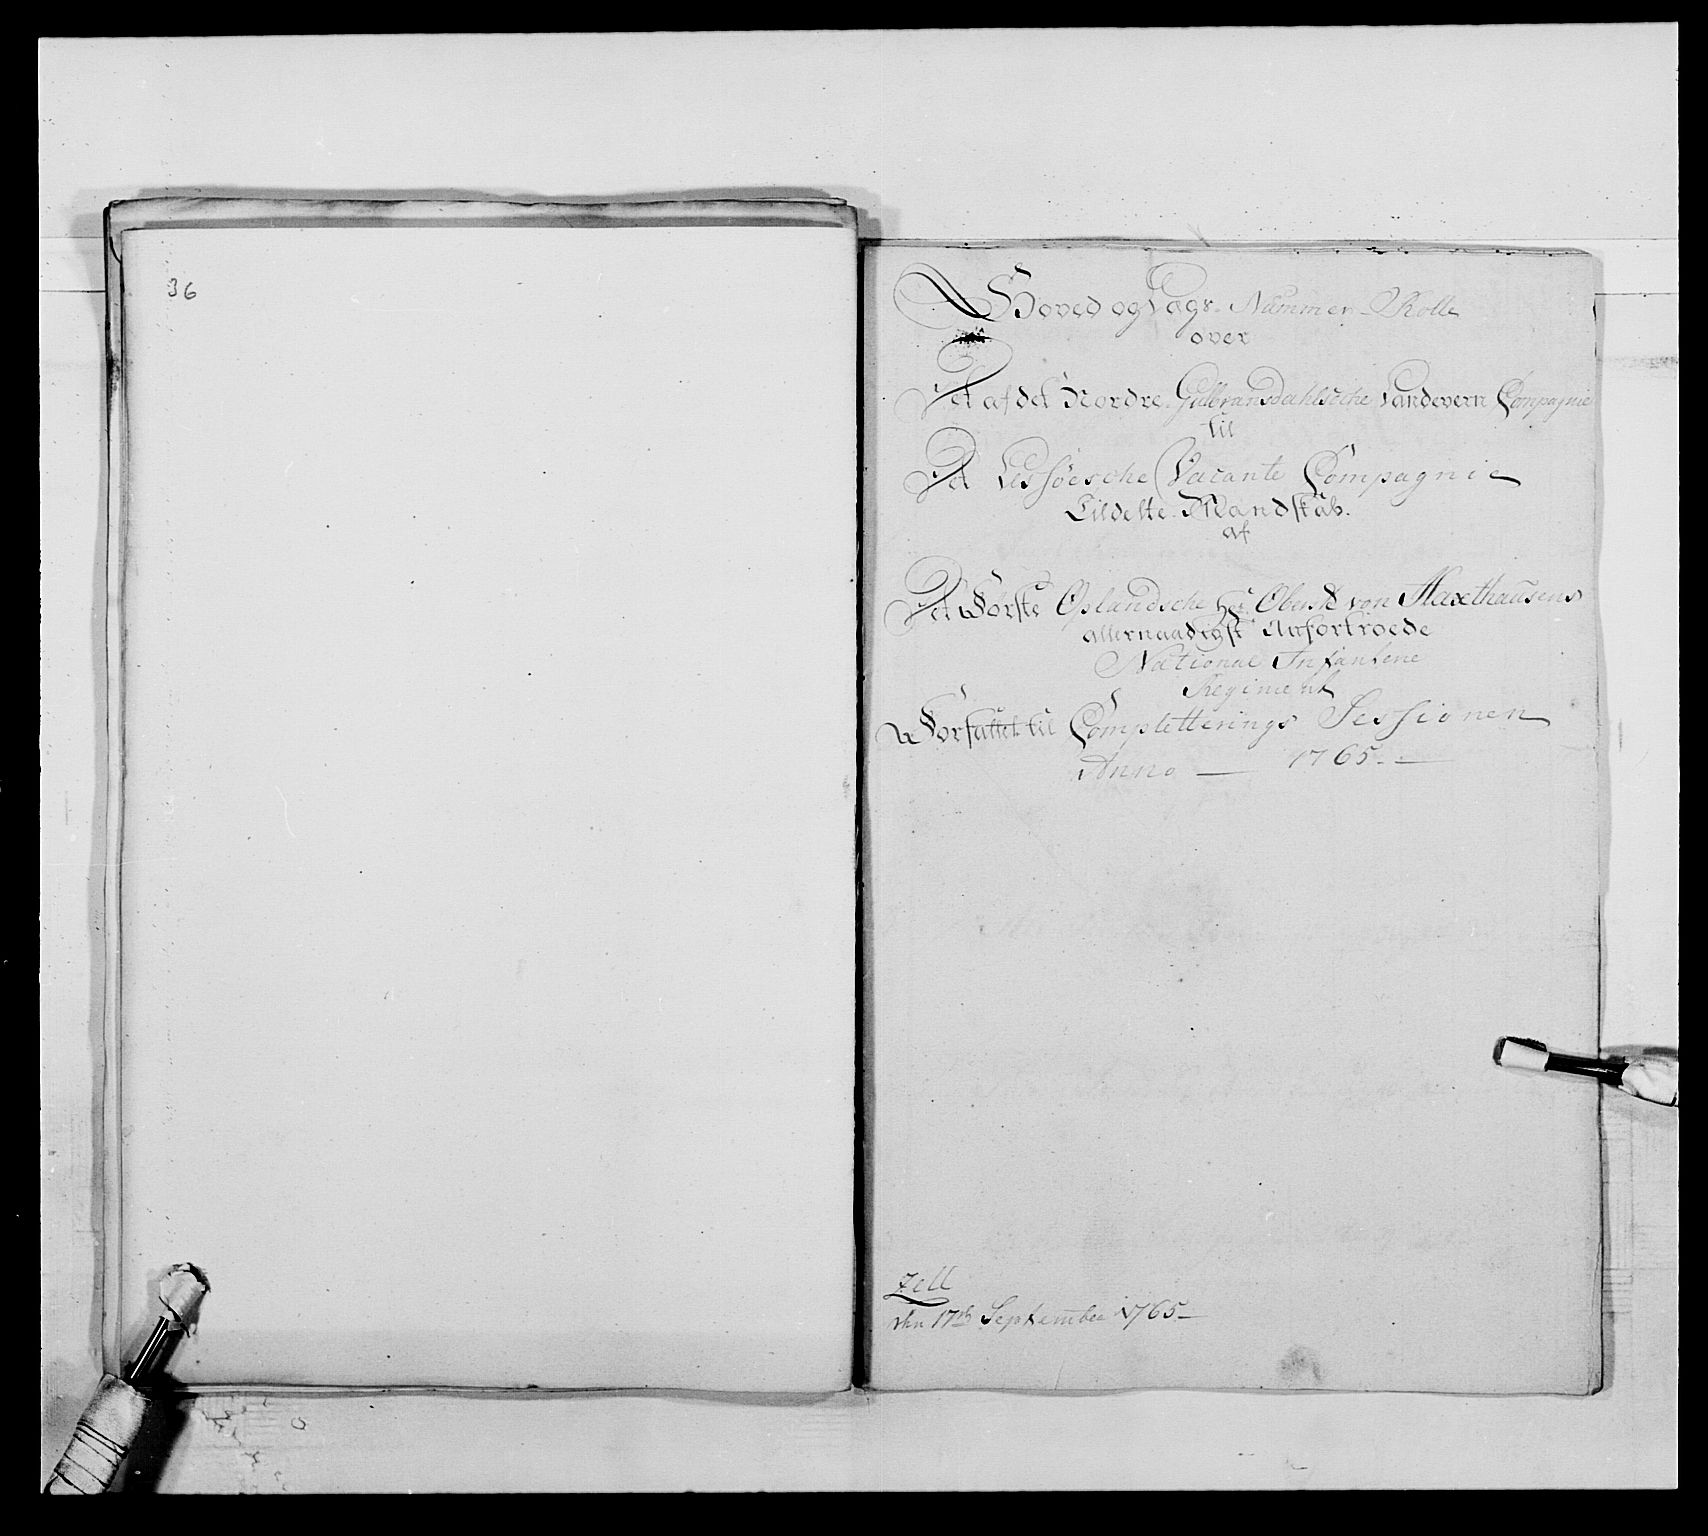 36
Hoved og Lægs-Nummer-Rolle
over
Det af det Nordre Gulbransdahlsche Landevern Compagnie
til
Det Lessöesche Vacante Compagnie
Tildelte Mandskab.
af
Det Förste Oplandsche Hr Oberste von Haxthausens
allernaadigst Anfortroede
National Infanterie
Regiment
Forfattet til Completterings Sessionen
Anno — 1765. —
Zell
den 17de September 1765 —